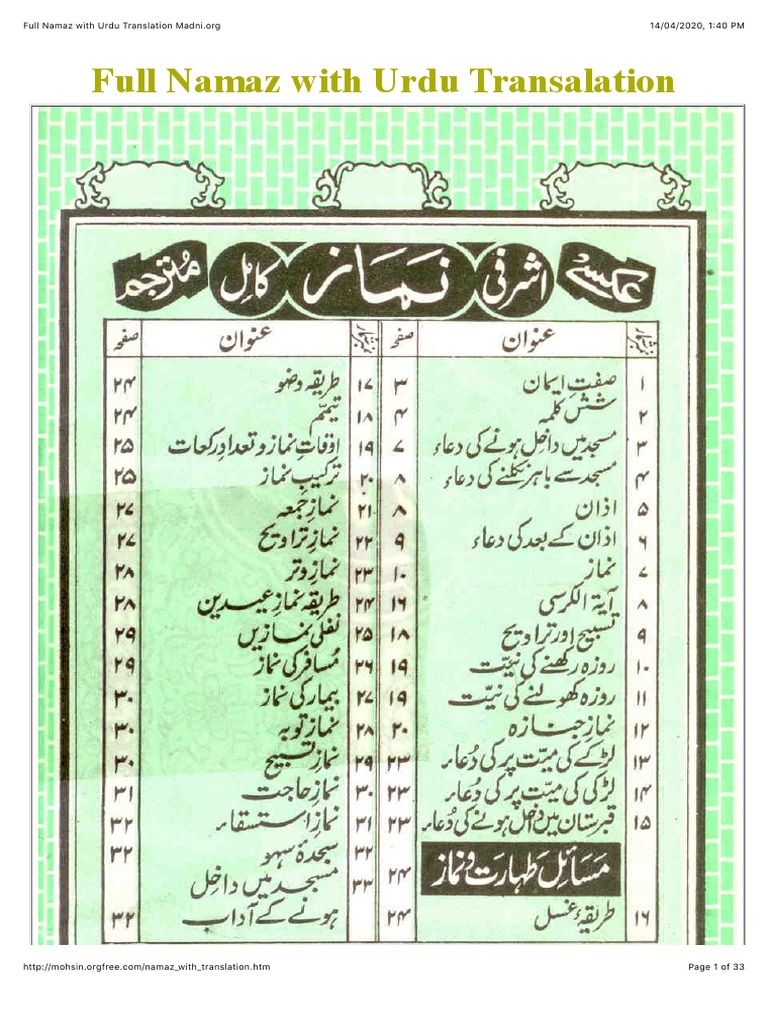 Full Namaz with Urdu Translation Madni.org 14/04/2020, 1:40 PM
Full Namaz with Urdu Transalation
عکسی اشرفی نماز کامل مترجم
عنوان صفحہ
۱ صفتِ ایمان ۳
۲ شش کلمہ ۴
۳ مسجد میں داخل ہونے کی دعاء ۷
۴ مسجد سے باہر نکلنے کی دعاء ۸
۵ اذان ۸
۶ اذان کے بعد کی دعاء ۹
۷ نماز ۱۰
۸ آیۃ الکرسی ۱۶
۹ تسبیح اور تراویح ۱۸
۱۰ روزہ رکھنے کی نیّت ۱۹
۱۱ روزہ کھولنے کی نیّت ۱۹
۱۲ نمازِ جنازہ ۲۰
۱۳ لڑکے کی میّت پر کی دُعاء ۲۳
۱۴ لڑکی کی میّت پر کی دُعاء ۲۳
۱۵ قبرستان میں داخل ہونے کی دُعاء ۲۳
مَسَائِل طہَارت و نماز ۲۴
۱۶ طریقۂ غسل ۲۴
عنوان صفحہ
۱۷ طریقہ وضو ۲۴
۱۸ تیمّم ۲۴
۱۹ اوقاتِ نماز و تعدادِ رکعات ۲۵
۲۰ ترکیبِ نماز ۲۵
۲۱ نمازِ جمعہ ۲۷
۲۲ نمازِ تراویح ۲۷
۲۳ نمازِ وتر ۲۸
۲۴ طریقہ نمازِ عیدین ۲۸
۲۵ نفلی نمازیں ۲۹
۲۶ مُسافر کی نماز ۲۹
۲۷ بیمار کی نماز ۳۰
۲۸ نمازِ توبہ ۳۰
۲۹ نمازِ تسبیح ۳۰
۳۰ نمازِ حاجت ۳۱
۳۱ نمازِ استسقاء ۳۲
۳۲ سجدۂ سہو ۳۲
۳۳ مسجد میں داخل
ہونے کے آداب ۳۲
http://mohsin.orgfree.com/namaz_with_translation.htm Page 1 of 33